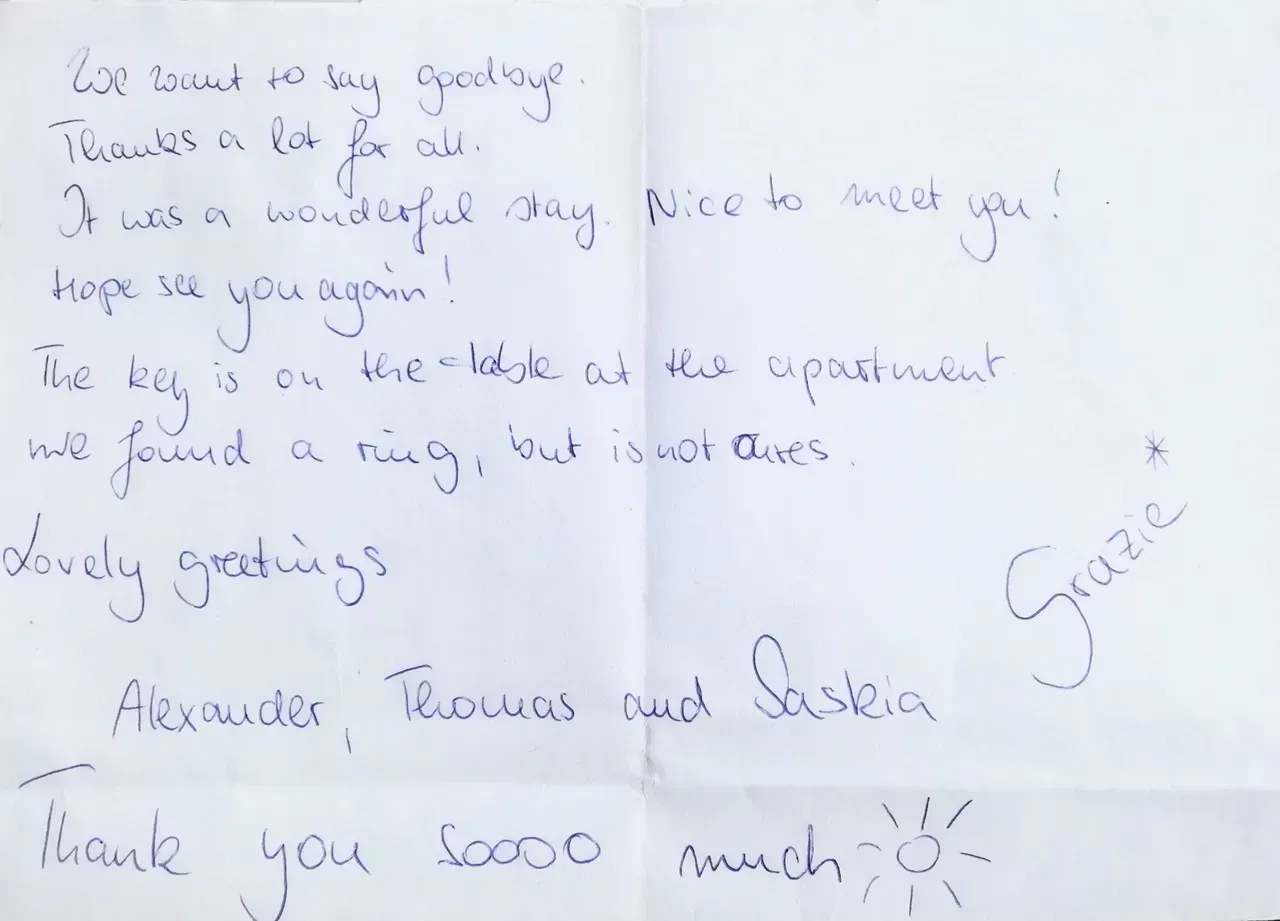 We want to say goodbye.
Thanks a lot for all.
It was a wonderful stay. Nice to meet you!
Hope see you again!
The key is on the table at the apartment
we found a ring, but is not oures.
Lovely greetings
Grazie *
Alexander, Thomas and Saskia
Thank you soooo much